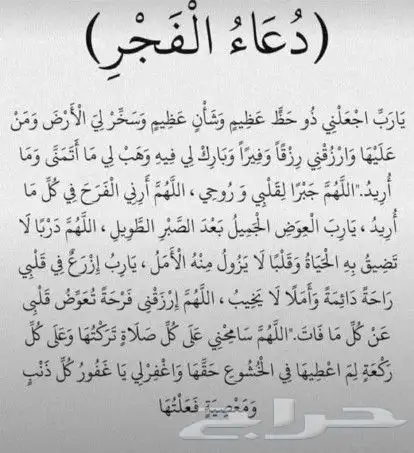 (دُعَاءُ الْفَجْرِ)
يَارَبِّ اجْعَلْنِي ذُو حَظٍّ عَظِيمٍ وَشَأْنٍ عَظِيمٍ وَسَخِّرْ لِيَ الْأَرْضَ وَمَنْ
عَلَيْهَا وَارْزُقْنِي رِزْقًا وَفِيرًا وَبَارِكْ لِي فِيهِ وَهَبْ لِي مَا أَتَمَنَّى وَمَا
أُرِيدُ."اللَّهُمَّ جَبْرًا لِقَلْبِي وَ رُوحِي ، اللَّهُمَّ أَرِنِي الْفَرَحَ فِي كُلِّ مَا
أُرِيدُ ، يَارِبَ الْعِوَضِ الْجَمِيلُ بَعْدَ الصَّبْرِ الطَّوِيلِ ، اللَّهُمَّ دَرْبًا لَا
تَضِيقُ بِهِ الْحَيَاةُ وَقَلْبًا لَا يَزُولُ مِنْهُ الْأَمَلُ ، يَارِبُ إِزْرَعْ فِي قَلْبِي
رَاحَةً دَائِمَةً وَأَمَلًا لَا يَخِيبُ ، اللَّهُمَّ إِرْزِقْنِي فَرْحَةً تُعَوِّضُ قَلْبِي
عَنْ كُلِّ مَا فَاتَ."اللَّهُمَّ سَامِحْنِي عَلَى كُلِّ صَلَاةٍ تَرَكْتُهَا وَعَلَى كُلِّ
رَكْعَةٍ لِمَ اعْطِيهَا فِي الْخُشُوعِ حَقَّهَا وَاغْفِرْلِي يَا غَفُورُ كُلَّ ذَنْبٍ
وَمَعْصِيَةٍ فَعَلْتُهَا
حراج